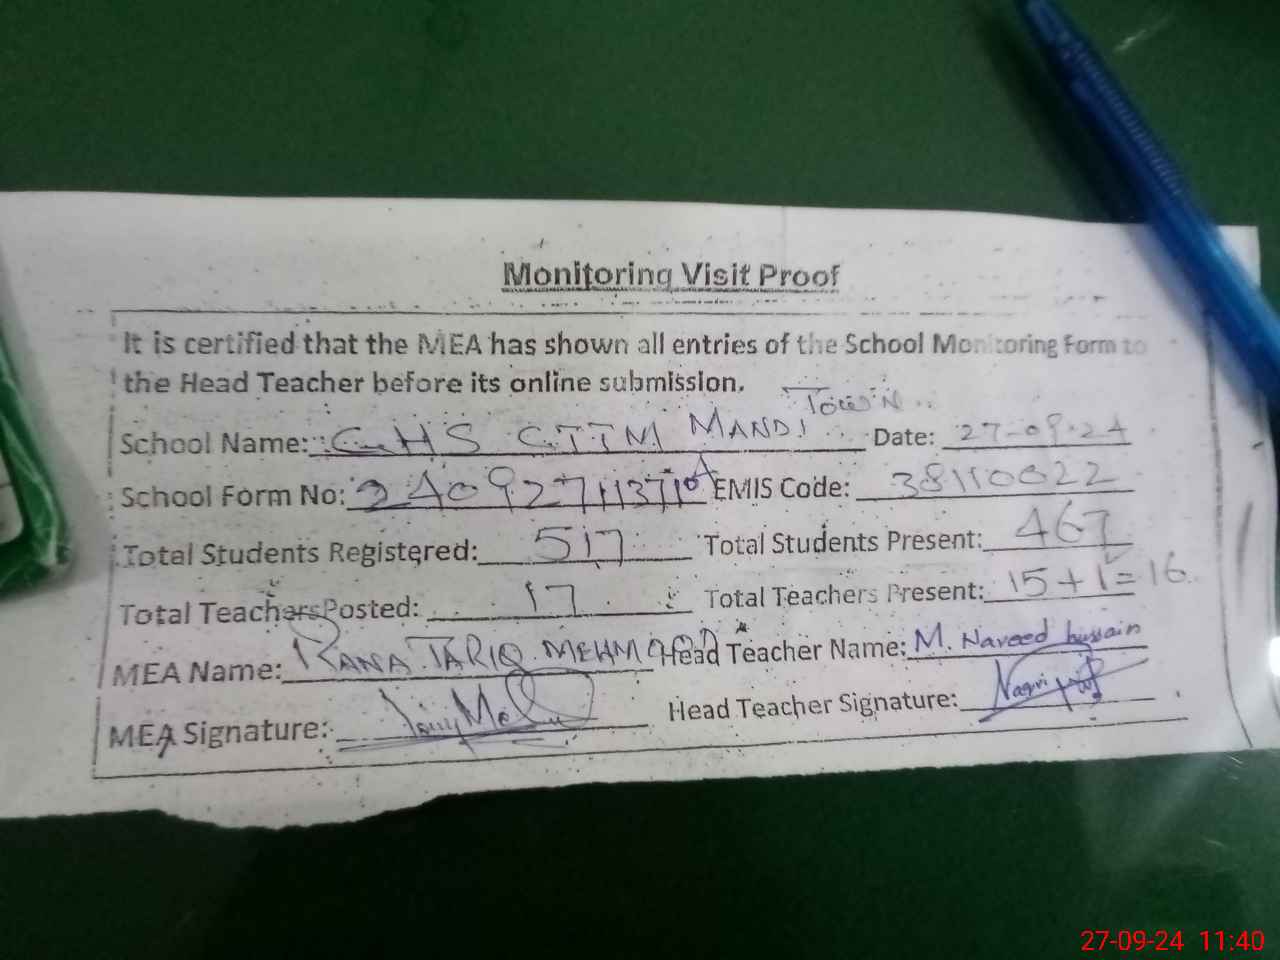 Monitoring Visit Proof
It is certified that the MEA has shown all entries of the School Monitoring Form to
the Head Teacher before its online submission.
School Name: GHS CTTM MANDI TOWN Date: 27-09-24
School Form No: EMIS Code: 38110022
Total Students Registered: 517 Total Students Present: 467
Total Teachers Posted: 17 Total Teachers Present: 15+1=16
MEA Name: RANA TARIQ MEHMOOD Head Teacher Name: M. Naveed hussain
MEA Signature: Head Teacher Signature:
27-09-24 11:40